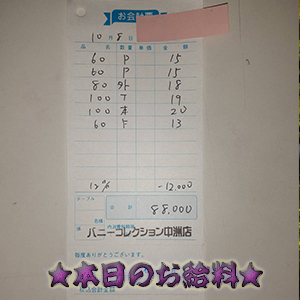 お会計
10月8日
品名 数量 単価 金額
60 P 15
60 P 15
80 外 18
100 T 19
100 本 20
60 F 13
12% -12,000
テーブル
名様
合計 88,000
バニーコレクション中洲店
毎度ありがとうございます。
★本日のお給料★